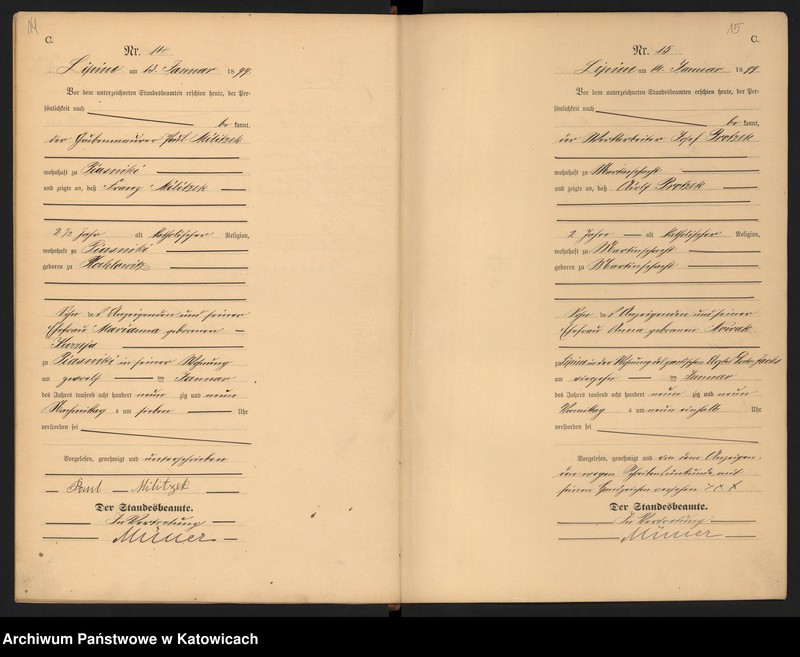 14
C.
Nr. 14
Lipine am 13. Januar 1899
Vor dem unterzeichneten Standesbeamten erschien heute, der Per-
sönlichkeit nach
be kannt,
der Grubenmaurer Paul Militzek
wohnhaft zu Piasniki
und zeigte an, daß Franz Militzek
2 ½ Jahr alt katholischer Religion,
wohnhaft zu Piasniki
geboren zu
Sohn des Anzeigenden und seiner
Ehefrau Marianna geborenen
zu Piasniki in seiner Wohnung
am zwölf ten Januar
des Jahres tausend acht hundert neun zig und neun
Nachmittag s um sieben Uhr
verstorben sei
Vorgelesen, genehmigt und unterschrieben
Paul Militzek
Der Standesbeamte.
In Vertretung
Müller
15
C.
Nr. 15
Lipine am 14. Januar 1899
Vor dem unterzeichneten Standesbeamten erschien heute, der Per-
sönlichkeit nach
be kannt,
der Werkarbeiter Josef Protzek
wohnhaft zu Martinschacht
und zeigte an, daß Adolf Protzek
2 Jahre alt katholischer Religion,
wohnhaft zu Martinschacht
geboren zu Martinschacht
Sohn des Anzeigenden und seiner
Ehefrau Anna geborenen Nowak
zu Lipine in der Wohnung des praktischen Arztes
am vierzehn ten Januar
des Jahres tausend acht hundert neun zig und neun
Vormittag s um neun einhalb Uhr
verstorben sei
Vorgelesen, genehmigt und von dem Anzeigen-
den wegen Schreibensunkunde mit
seinem Handzeichen versehen XXX
Der Standesbeamte.
In Vertretung
Müller
Archiwum Państwowe w Katowicach